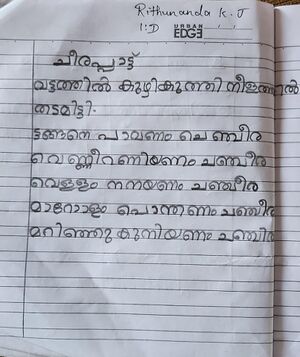 Rithunanda K.J
1:D URBAN EDGE
ചീരപ്പാട്ട്
വട്ടത്തിൽ കുഴികുത്തി നീളത്തിൽ
തടമിട്ടി.
ട്ടങ്ങനെ പാവണം ചെഞ്ചീര
വെണ്ണീറണിയണം ചഞ്ചീര
വെള്ളം നനയണം ചഞ്ചീര
മാറോളം പൊന്തണം ചഞ്ചീര
മറിഞ്ഞു കുനിയണം ചഞ്ചീര